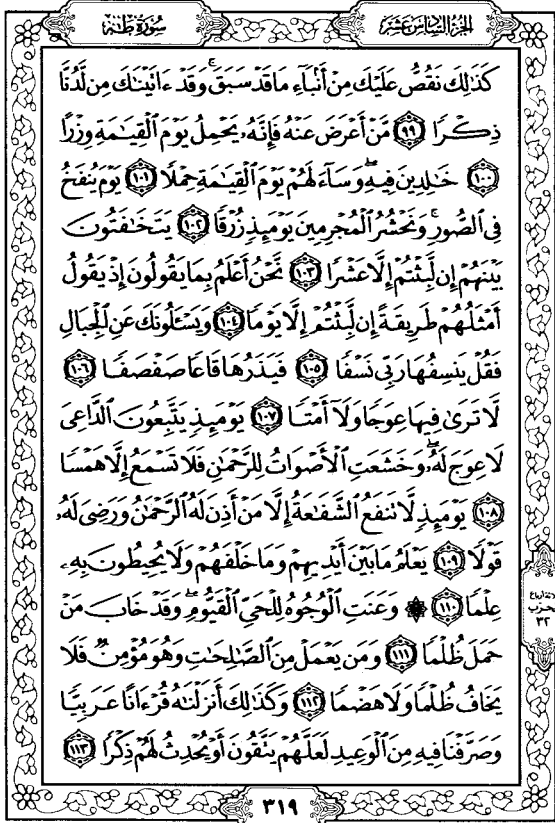 الجزء السادس عشر
سورة طه
كَذَٰلِكَ نَقُصُّ عَلَيْكَ مِنْ أَنۢبَآءِ مَا قَدْ سَبَقَ ۚ وَقَدْ ءَاتَيْنَـٰكَ مِن لَّدُنَّا
ذِكْرًا ٩٩ مَّنْ أَعْرَضَ عَنْهُ فَإِنَّهُۥ يَحْمِلُ يَوْمَ ٱلْقِيَـٰمَةِ وِزْرًا
١٠٠ خَـٰلِدِينَ فِيهِ ۖ وَسَآءَ لَهُمْ يَوْمَ ٱلْقِيَـٰمَةِ حِمْلًا ١٠١ يَوْمَ يُنفَخُ
فِى ٱلصُّورِ ۚ وَنَحْشُرُ ٱلْمُجْرِمِينَ يَوْمَئِذٍ زُرْقًا ١٠٢ يَتَخَـٰفَتُونَ
بَيْنَهُمْ إِن لَّبِثْتُمْ إِلَّا عَشْرًا ١٠٣ نَّحْنُ أَعْلَمُ بِمَا يَقُولُونَ إِذْ يَقُولُ
أَمْثَلُهُمْ طَرِيقَةً إِن لَّبِثْتُمْ إِلَّا يَوْمًا ١٠٤ وَيَسْـَٔلُونَكَ عَنِ ٱلْجِبَالِ
فَقُلْ يَنسِفُهَا رَبِّى نَسْفًا ١٠٥ فَيَذَرُهَا قَاعًا صَفْصَفًا ١٠٦
لَّا تَرَىٰ فِيهَا عِوَجًا وَلَآ أَمْتًا ١٠٧ يَوْمَئِذٍ يَتَّبِعُونَ ٱلدَّاعِىَ
لَا عِوَجَ لَهُۥ ۖ وَخَشَعَتِ ٱلْأَصْوَاتُ لِلرَّحْمَـٰنِ فَلَا تَسْمَعُ إِلَّا هَمْسًا
١٠٨ يَوْمَئِذٍ لَّا تَنفَعُ ٱلشَّفَـٰعَةُ إِلَّا مَنْ أَذِنَ لَهُ ٱلرَّحْمَـٰنُ وَرَضِىَ لَهُۥ
قَوْلًا ١٠٩ يَعْلَمُ مَا بَيْنَ أَيْدِيهِمْ وَمَا خَلْفَهُمْ وَلَا يُحِيطُونَ بِهِۦ
عِلْمًا ١١٠ ۞ وَعَنَتِ ٱلْوُجُوهُ لِلْحَىِّ ٱلْقَيُّومِ ۖ وَقَدْ خَابَ مَنْ
حَمَلَ ظُلْمًا ١١١ وَمَن يَعْمَلْ مِنَ ٱلصَّـٰلِحَـٰتِ وَهُوَ مُؤْمِنٌ فَلَا
يَخَافُ ظُلْمًا وَلَا هَضْمًا ١١٢ وَكَذَٰلِكَ أَنزَلْنَـٰهُ قُرْءَانًا عَرَبِيًّا
وَصَرَّفْنَا فِيهِ مِنَ ٱلْوَعِيدِ لَعَلَّهُمْ يَتَّقُونَ أَوْ يُحْدِثُ لَهُمْ ذِكْرًا ١١٣
ثلاثة أرباع
حزب
٣٢
٣١٩